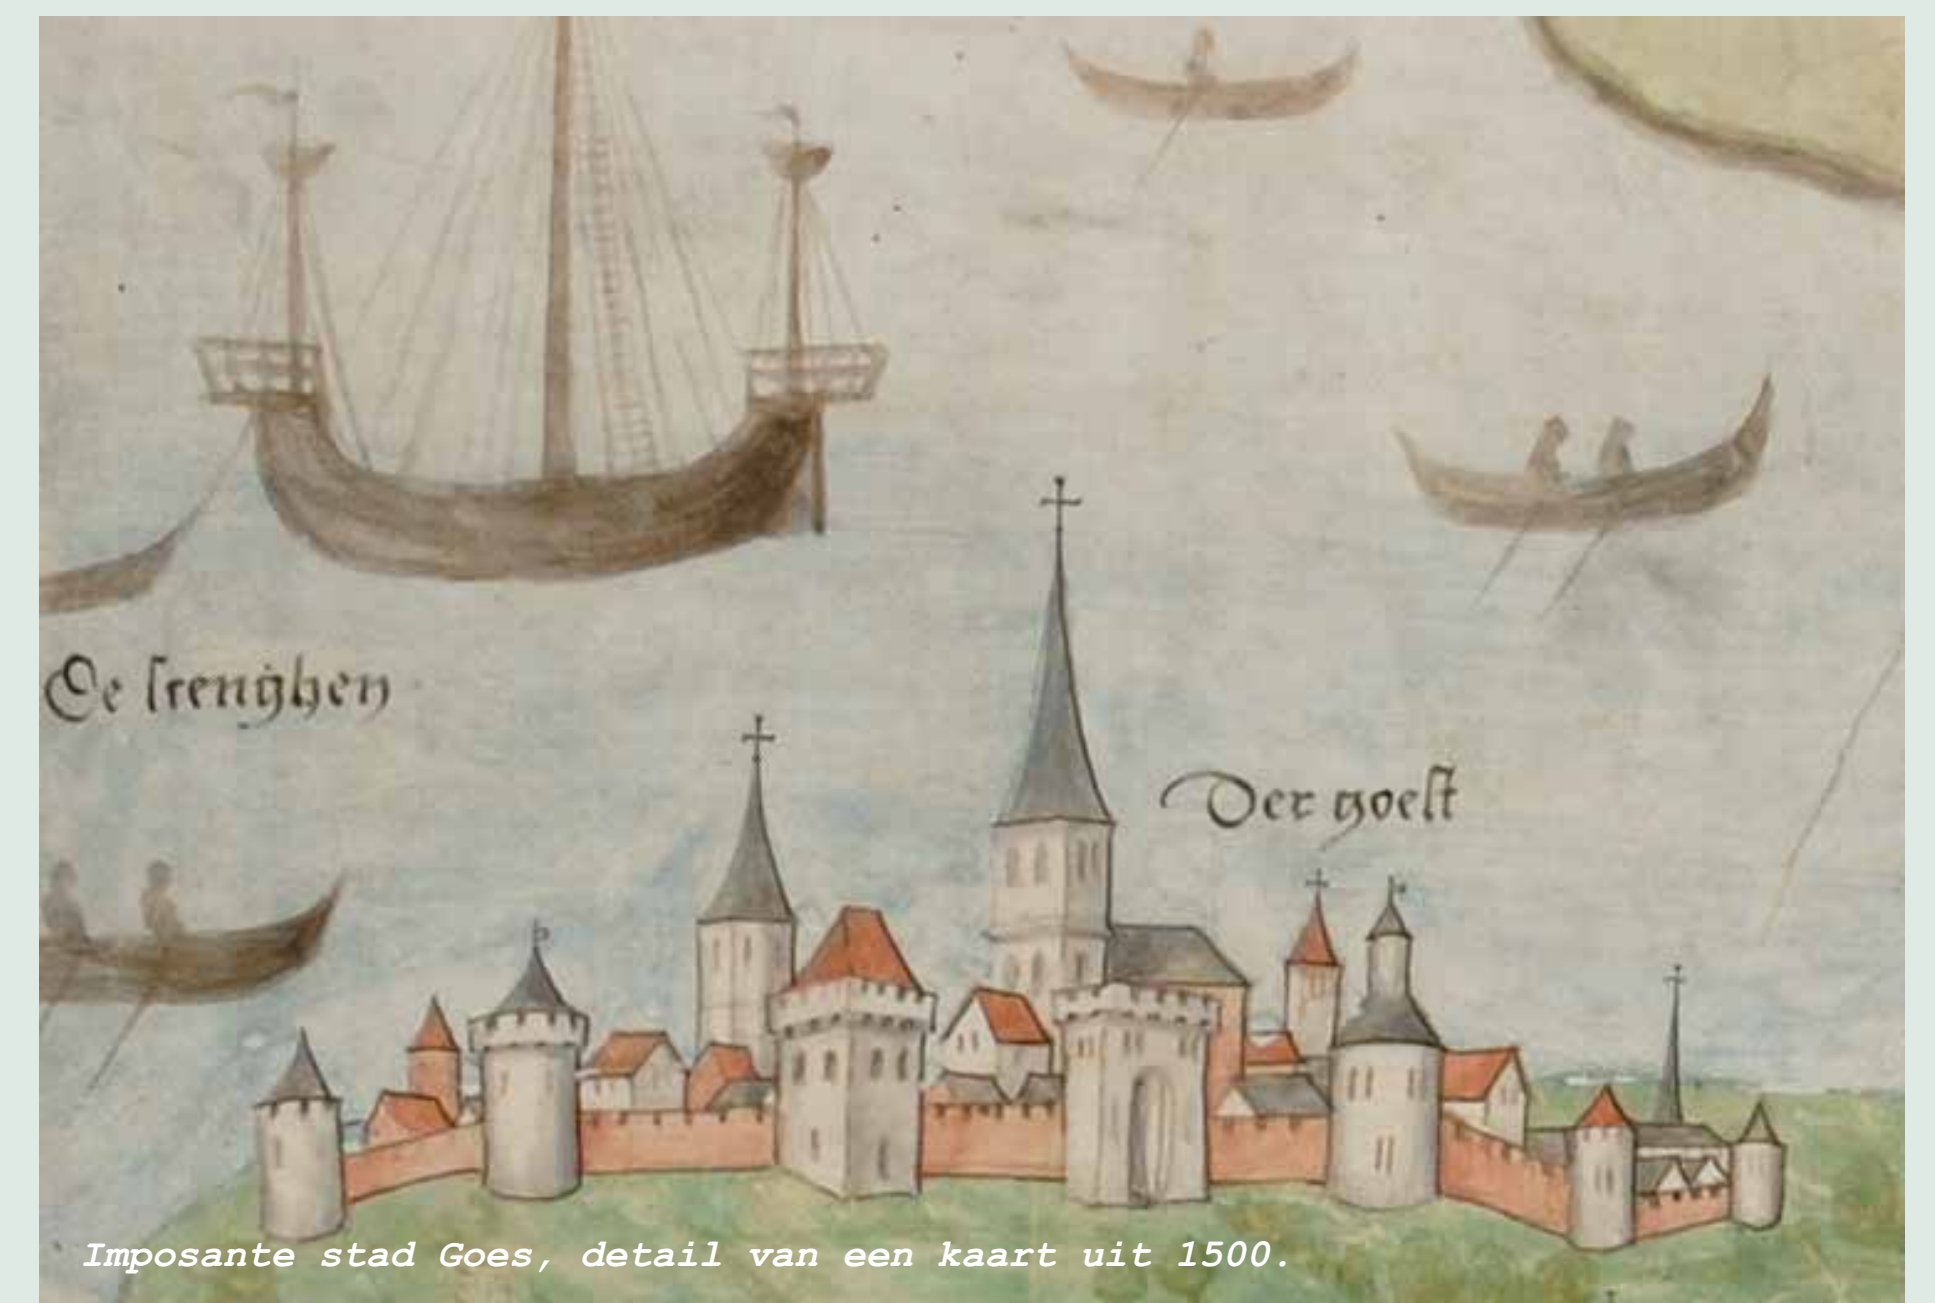 De srenghen
Der goest
Imposante stad Goes, detail van een kaart uit 1500.